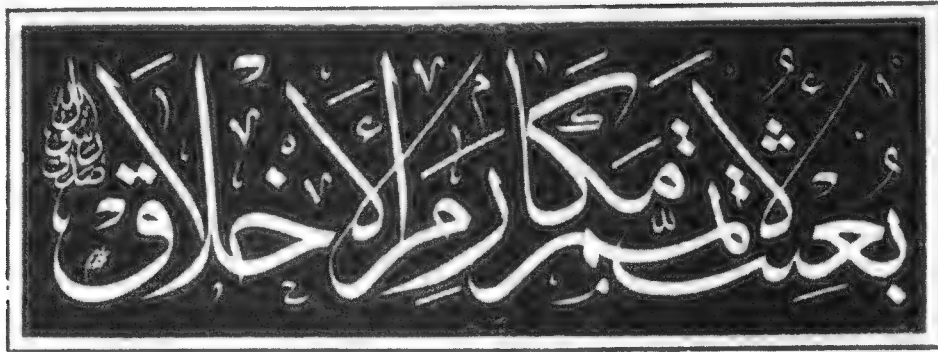 بُعِثْتُ لِأُتَمِّمَ مَكَارِمَ الْأَخْلَاقِ
صدق رسول الله